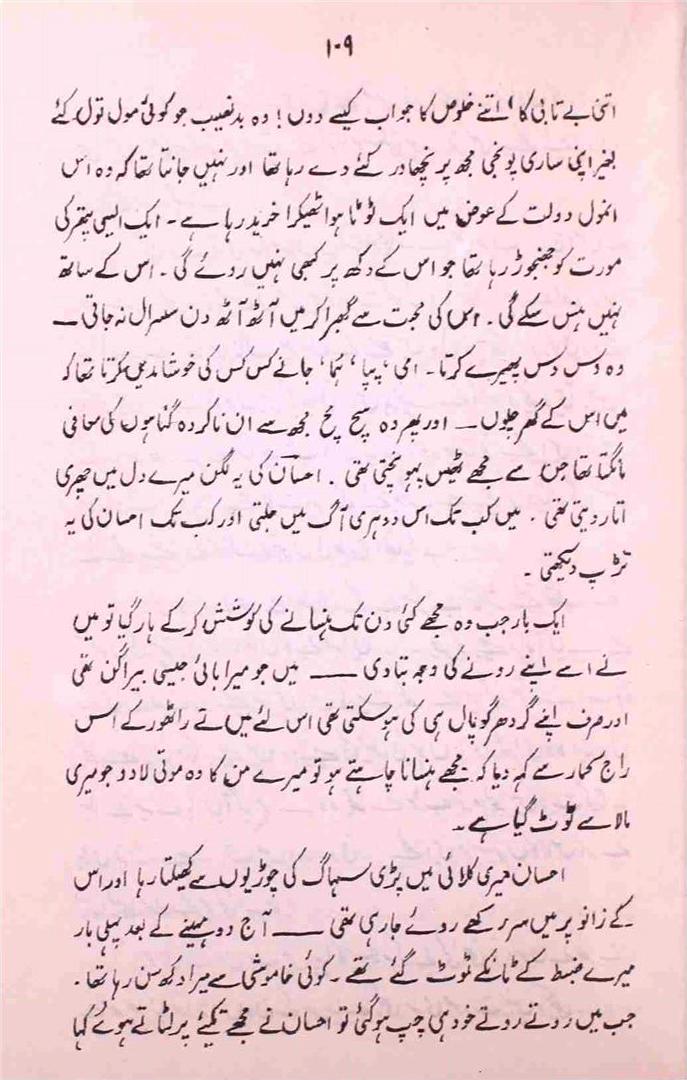 ۱۰۹
اتنی بے تابی کا، اتنے خلوص کا جواب کیسے دوں! وہ بدنصیب جو کوئی مول تول کئے
بغیر اپنی ساری پونجی مجھ پر نچھاور کئے دے رہا تھا اور نہیں جانتا تھا کہ وہ اس
انمول دولت کے عوض میں ایک ٹوٹا ہوا ٹھیکرا خرید رہا ہے۔ ایک ایسی پتھر کی
مورت کو جھنجوڑ رہا تھا جو اس کے دکھ پر کبھی نہیں روئے گی۔ اس کے ساتھ
نہیں ہنس سکے گی۔ اس کی محبت سے گھبرا کر میں آٹھ آٹھ دن سسرال نہ جاتی —
وہ دس دس پھیرے کرتا۔ امی، پپا، ہُما، جانے کس کس کی خوشامدیں کرتا تھا کہ
میں اس کے گھر چلوں — اور پھر وہ سچ مچ مجھ سے ان ناکردہ گناہوں کی معافی
مانگتا تھا جن سے مجھے ٹھیس پہونچتی تھی۔ احسان کی یہ لگن میرے دل میں چھری
اتار دیتی تھی۔ میں کب تک اس دوہری آگ میں جلتی اور کب تک احسان کی یہ
تڑپ دیکھتی۔
ایک بار جب وہ مجھے کئی دن تک ہنسانے کی کوشش کر کے ہار گیا تو میں
نے اسے اپنے رونے کی وجہ بتا دی —— میں جو میرا بائی جیسی بیراگن تھی
اور صرف اپنے گردھر گوپال ہی کی ہو سکتی تھی اس لئے میں نے راٹھور کے اس
راج کمار سے کہہ دیا کہ مجھے ہنسانا چاہتے ہو تو میرے من کا وہ موتی لا دو جو میری
مالا سے ٹوٹ گیا ہے۔
احسان میری کلائی میں پڑی سہاگ کی چوڑیوں سے کھیلتا رہا اور اس
کے زانو پر میں سر رکھے روئے جا رہی تھی —— آج دو مہینے کے بعد پہلی بار
میرے ضبط کے ٹانکے ٹوٹ گئے تھے۔ کوئی خاموشی سے میرا دکھ سن رہا تھا۔
جب میں روتے روتے خود ہی چپ ہو گئی تو احسان نے مجھے تکیئے پر لٹاتے ہوئے کہا